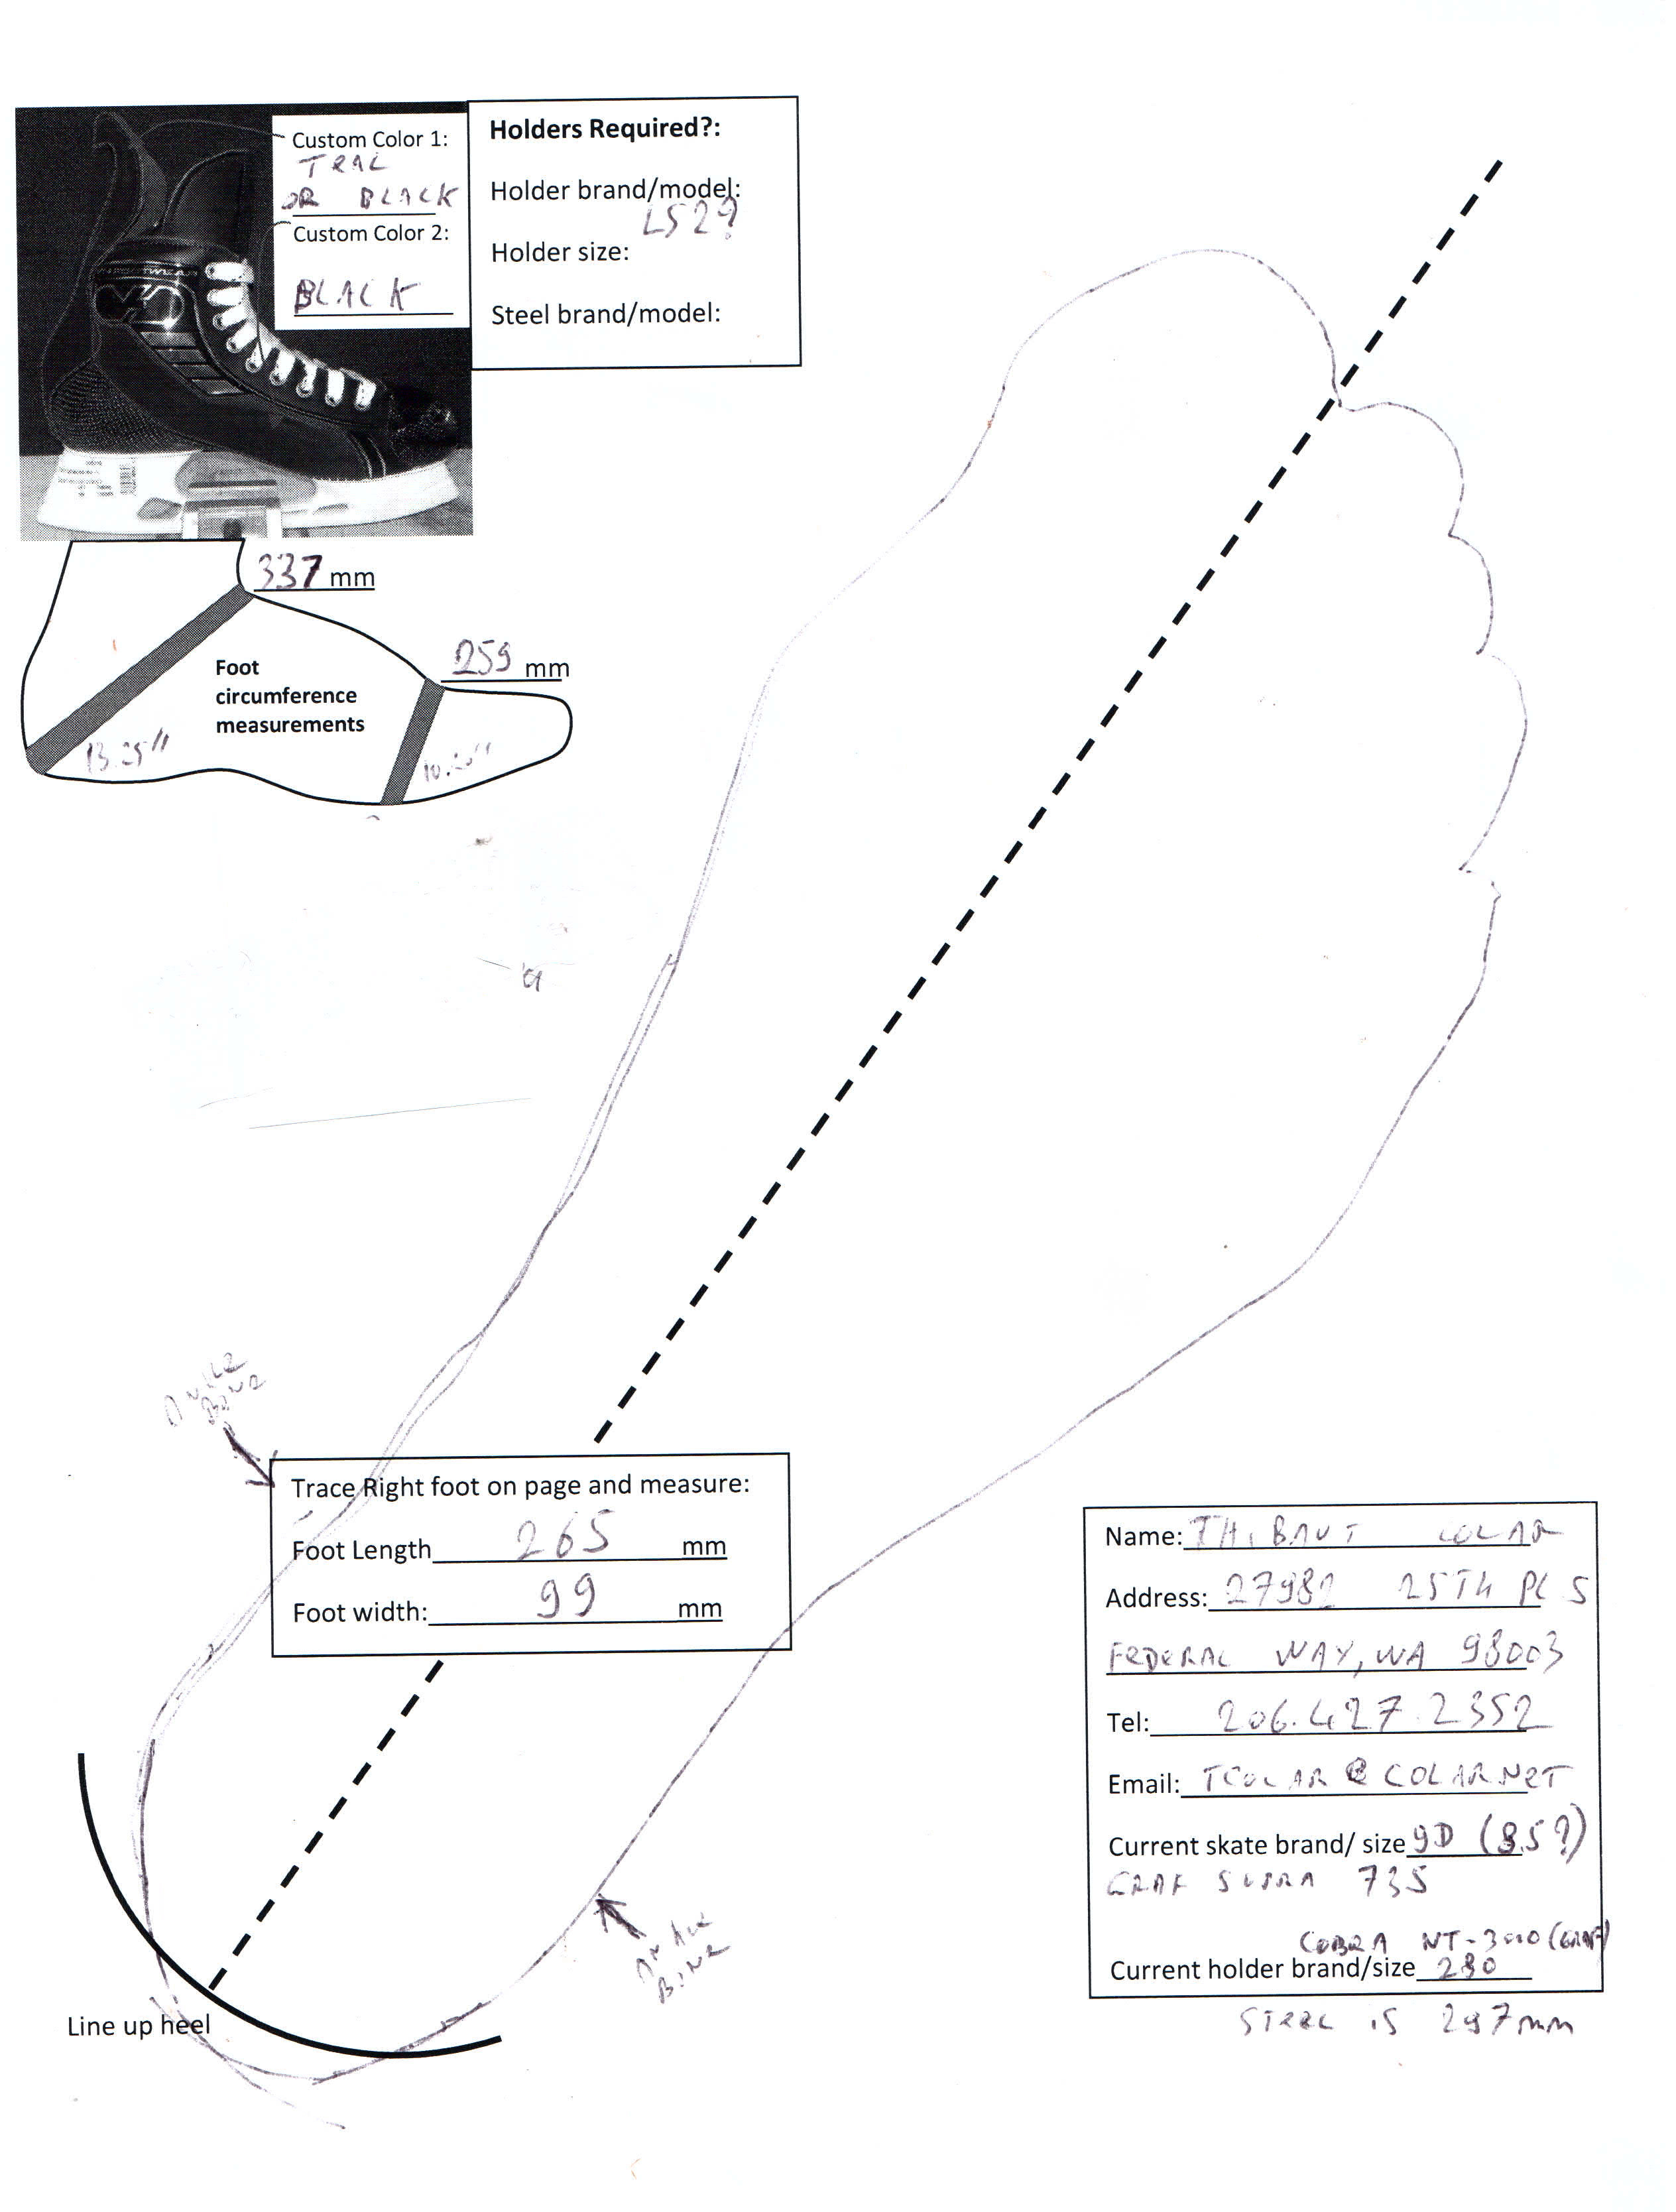 Custom Color 1:
TEAL
OR BLACK
Custom Color 2:
BLACK
Holders Required?:
Holder brand/model:
LS2?
Holder size:
Steel brand/model:
337 mm
259 mm
Foot
circumference
measurements
13.25"
ANKLE
BONE
Trace Right foot on page and measure:
Foot Length 265 mm
Foot width: 99 mm
Line up heel
ANKLE
BONE
Name: THIBAUT COLAR
Address: 27982 25TH PL S
FEDERAL WAY, WA 98003
Tel: 206.427.2352
Email: TCOLAR@COLAR.NET
Current skate brand/ size 9D (8.5?)
GRAF SUPRA 735
COBRA NT-3000 (GRAF)
Current holder brand/size 280
STEEL IS 297mm